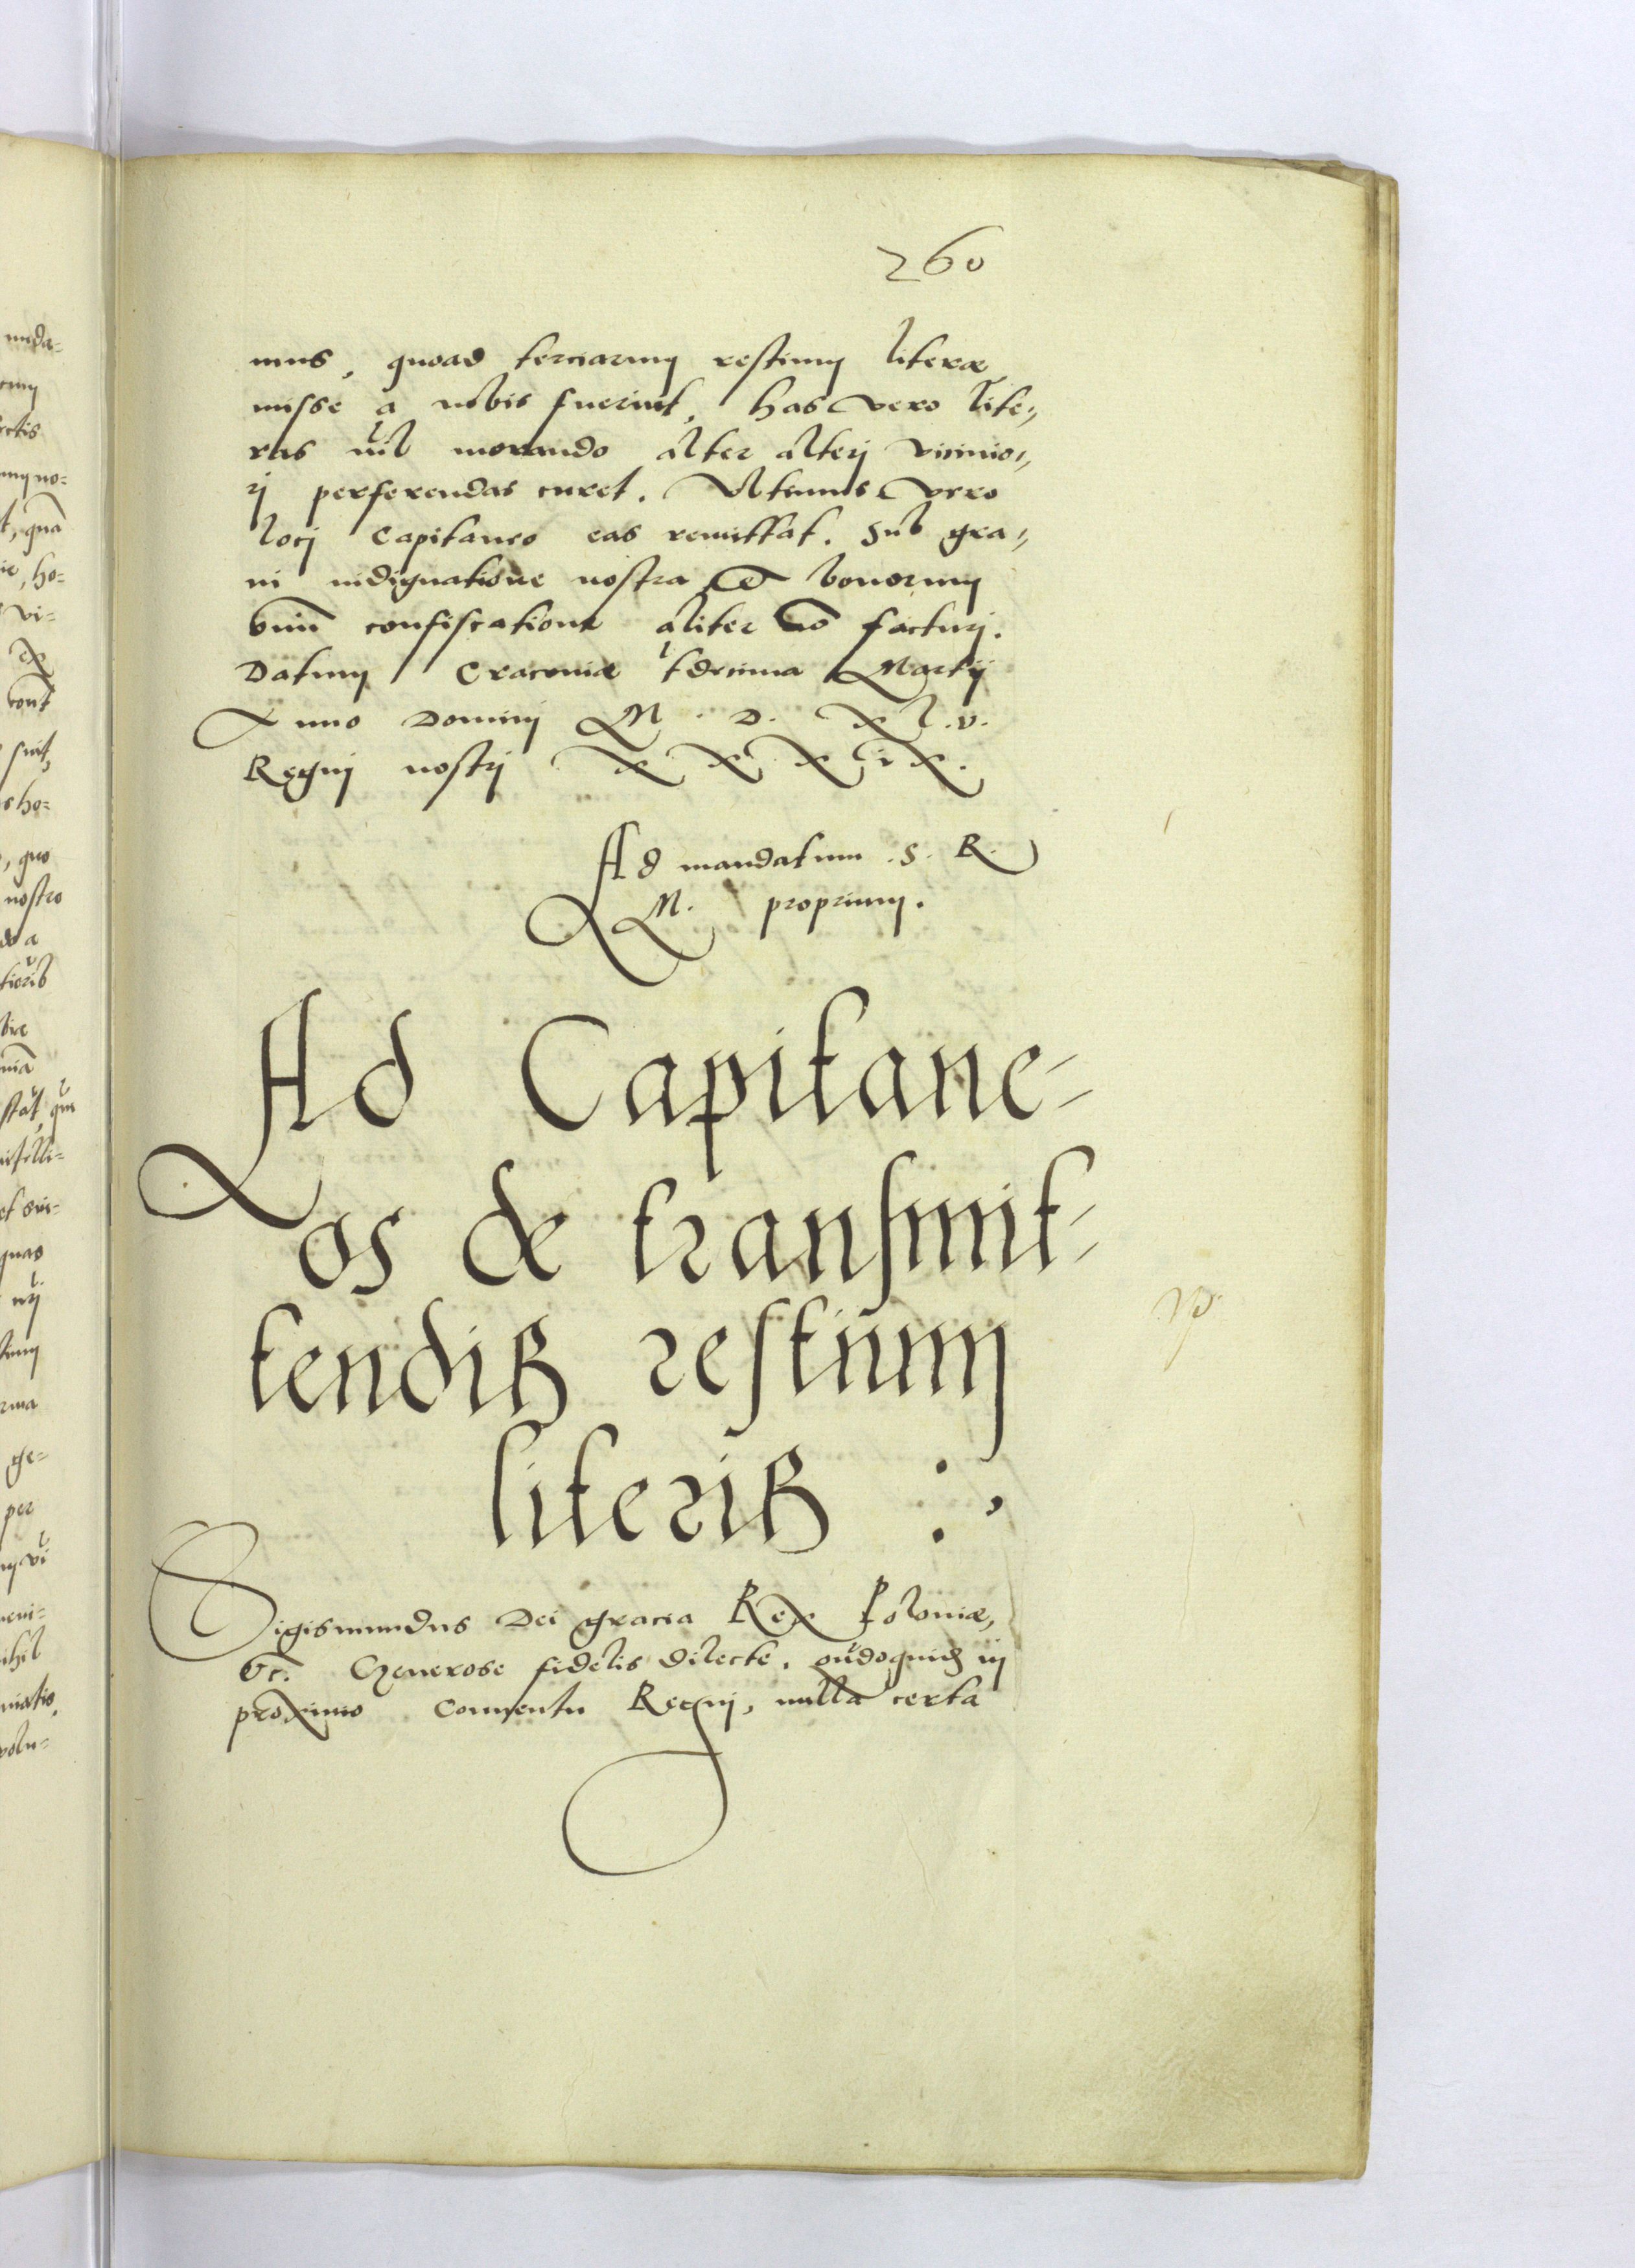 260
mus, quoad terciarum restium literæ
misse a nobis fuerint, has vero lite„
ras nil morando alter alteri vicinio„
ri perferendas curet. Vltimus vero
loci Capitaneo eas remittat. Sub gra„
vi indignatione nostra et bonorum
confiscatione aliter no facturi.
Datum Cracoviæ Martij
Anno Domini M. D. xl.v.
Regni nostri xxxix.
Ad mandatum .S. R.
M. proprium.
Ad Capitane-
os de transmit-
tendis restium
literis :,
Sigismundus Dei gracia Rex Poloniæ,
&c. Generose fidelis dilecte. quādoquidē in
proximo Conventu Regni, nulla certa